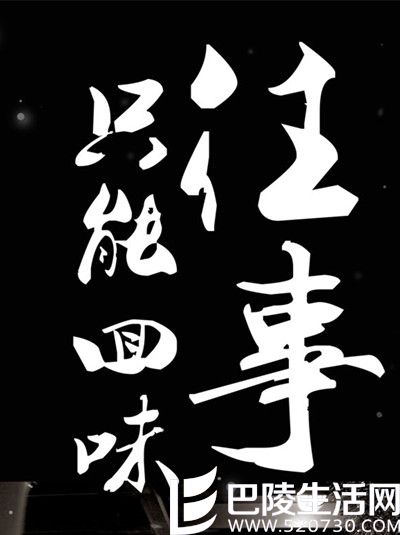 往事
只能回味
巴陵生活网
www.520730.com